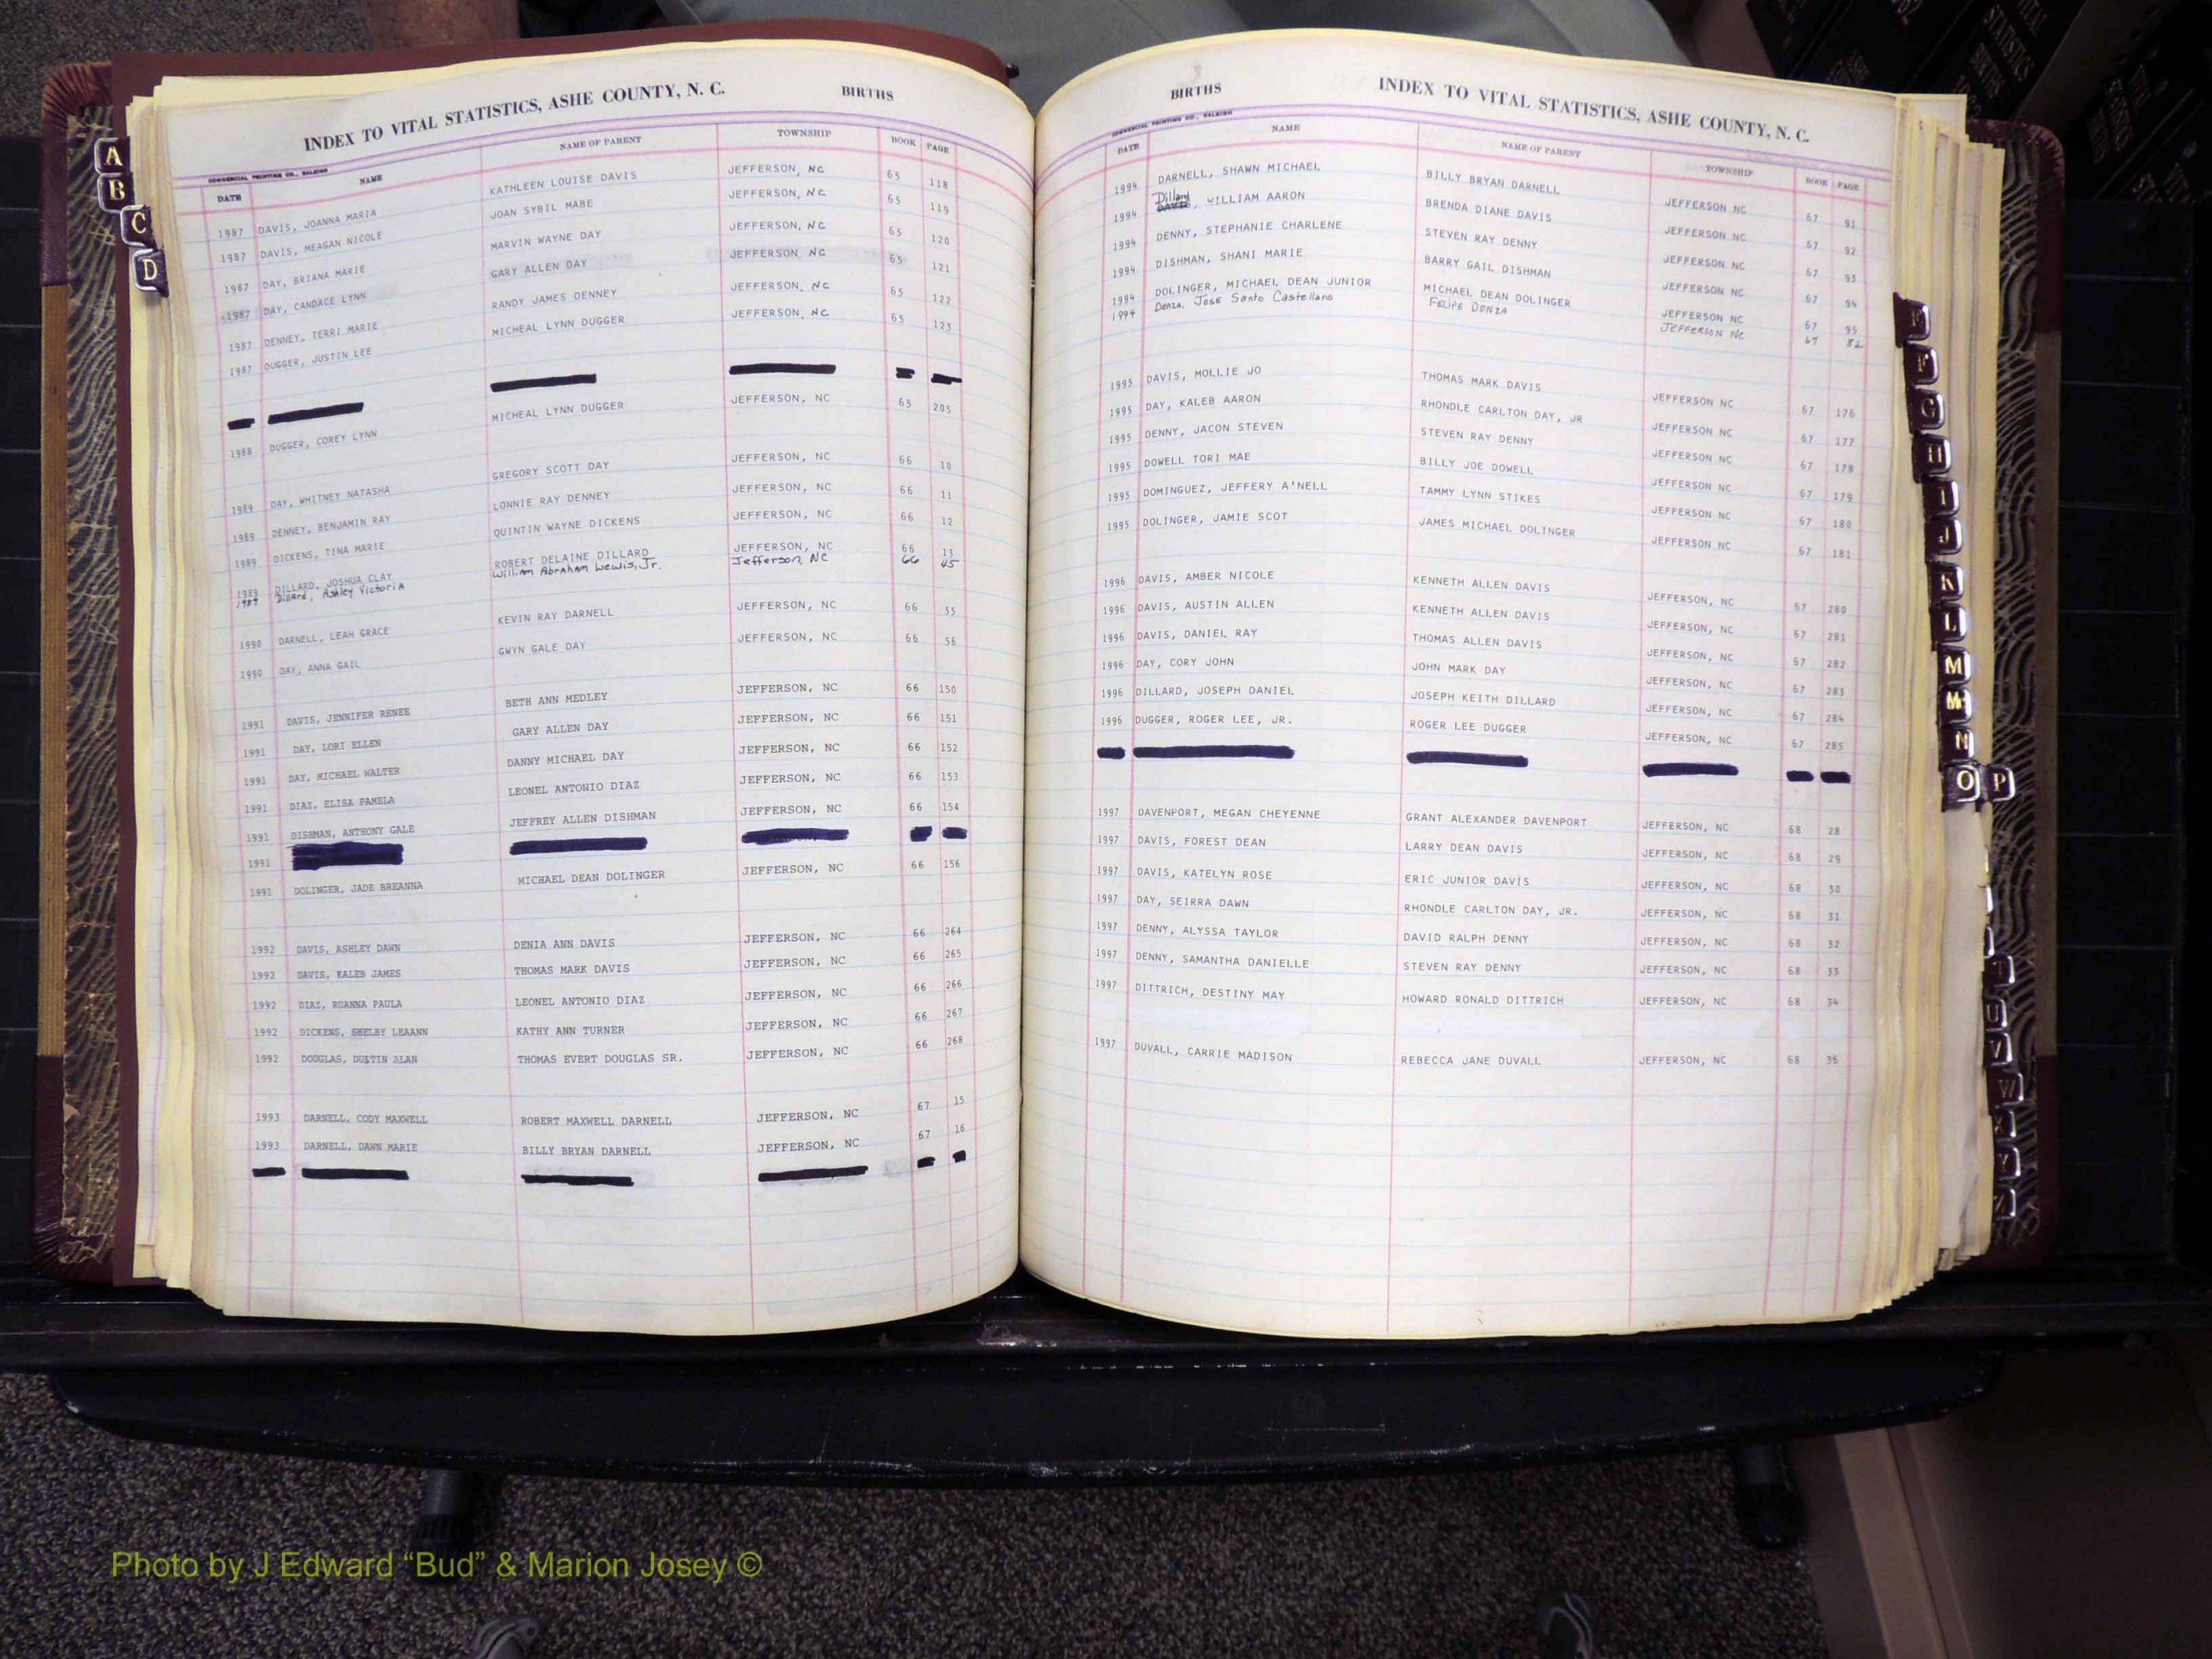 INDEX TO VITAL STATISTICS, ASHE COUNTY, N. C. BIRTHS
COMMERCIAL PRINTING CO., RALEIGH
DATE NAME NAME OF PARENT TOWNSHIP BOOK PAGE
1987 DAVIS, JOANNA MARIA KATHLEEN LOUISE DAVIS JEFFERSON, NC 65 118
1987 DAVIS, MEAGAN NICOLE JOAN SYBIL MABE JEFFERSON, NC 65 119
1987 DAY, BRIANA MARIE MARVIN WAYNE DAY JEFFERSON, NC 65 120
1987 DAY, CANDACE LYNN GARY ALLEN DAY JEFFERSON, NC 65 121
1987 DENNEY, TERRI MARIE RANDY JAMES DENNEY JEFFERSON, NC 65 122
1987 DUGGER, JUSTIN LEE MICHEAL LYNN DUGGER JEFFERSON, NC 65 123
1988 DUGGER, COREY LYNN MICHEAL LYNN DUGGER JEFFERSON, NC 65 205
1989 DAY, WHITNEY NATASHA GREGORY SCOTT DAY JEFFERSON, NC 66 10
1989 DENNEY, BENJAMIN RAY LONNIE RAY DENNEY JEFFERSON, NC 66 11
1989 DICKENS, TINA MARIE QUINTIN WAYNE DICKENS JEFFERSON, NC 66 12
1989 DILLARD, JOSHUA CLAY ROBERT DELAINE DILLARD JEFFERSON, NC 66 13
1989 Dillard, Ashley Victoria William Abraham Lewis, Jr. Jefferson, NC 66 45
1990 DARNELL, LEAH GRACE KEVIN RAY DARNELL JEFFERSON, NC 66 55
1990 DAY, ANNA GAIL GWYN GALE DAY JEFFERSON, NC 66 56
1991 DAVIS, JENNIFER RENEE BETH ANN MEDLEY JEFFERSON, NC 66 150
1991 DAY, LORI ELLEN GARY ALLEN DAY JEFFERSON, NC 66 151
1991 DAY, MICHAEL WALTER DANNY MICHAEL DAY JEFFERSON, NC 66 152
1991 DIAZ, ELISA PAMELA LEONEL ANTONIO DIAZ JEFFERSON, NC 66 153
1991 DISHMAN, ANTHONY GALE JEFFREY ALLEN DISHMAN JEFFERSON, NC 66 154
1991
1991 DOLINGER, JADE BREANNA MICHAEL DEAN DOLINGER JEFFERSON, NC 66 156
1992 DAVIS, ASHLEY DAWN DENIA ANN DAVIS JEFFERSON, NC 66 264
1992 DAVIS, KALEB JAMES THOMAS MARK DAVIS JEFFERSON, NC 66 265
1992 DIAZ, RUANNA PAULA LEONEL ANTONIO DIAZ JEFFERSON, NC 66 266
1992 DICKENS, SHELBY LEAANN KATHY ANN TURNER JEFFERSON, NC 66 267
1992 DOUGLAS, DUSTIN ALAN THOMAS EVERT DOUGLAS SR. JEFFERSON, NC 66 268
1993 DARNELL, CODY MAXWELL ROBERT MAXWELL DARNELL JEFFERSON, NC 67 15
1993 DARNELL, DAWN MARIE BILLY BRYAN DARNELL JEFFERSON, NC 67 16
BIRTHS INDEX TO VITAL STATISTICS, ASHE COUNTY, N. C.
COMMERCIAL PRINTING CO., RALEIGH
DATE NAME NAME OF PARENT TOWNSHIP BOOK PAGE
1994 DARNELL, SHAWN MICHAEL BILLY BRYAN DARNELL JEFFERSON NC 67 91
1994 Dillard DAVIS, WILLIAM AARON BRENDA DIANE DAVIS JEFFERSON NC 67 92
1994 DENNY, STEPHANIE CHARLENE STEVEN RAY DENNY JEFFERSON NC 67 93
1994 DISHMAN, SHANI MARIE BARRY GAIL DISHMAN JEFFERSON NC 67 94
1994 DOLINGER, MICHAEL DEAN JUNIOR MICHAEL DEAN DOLINGER JEFFERSON NC 67 95
1994 Denza, Jose Santo Castellano FELIPE DENZA JEFFERSON NC 67 82
1995 DAVIS, MOLLIE JO THOMAS MARK DAVIS JEFFERSON NC 67 176
1995 DAY, KALEB AARON RHONDLE CARLTON DAY, JR JEFFERSON NC 67 177
1995 DENNY, JACON STEVEN STEVEN RAY DENNY JEFFERSON NC 67 178
1995 DOWELL TORI MAE BILLY JOE DOWELL JEFFERSON NC 67 179
1995 DOMINGUEZ, JEFFERY A'NELL TAMMY LYNN STIKES JEFFERSON NC 67 180
1995 DOLINGER, JAMIE SCOT JAMES MICHAEL DOLINGER JEFFERSON NC 67 181
1996 DAVIS, AMBER NICOLE KENNETH ALLEN DAVIS JEFFERSON, NC 67 280
1996 DAVIS, AUSTIN ALLEN KENNETH ALLEN DAVIS JEFFERSON, NC 67 281
1996 DAVIS, DANIEL RAY THOMAS ALLEN DAVIS JEFFERSON, NC 67 282
1996 DAY, CORY JOHN JOHN MARK DAY JEFFERSON, NC 67 283
1996 DILLARD, JOSEPH DANIEL JOSEPH KEITH DILLARD JEFFERSON, NC 67 284
1996 DUGGER, ROGER LEE, JR. ROGER LEE DUGGER JEFFERSON, NC 67 285
1997 DAVENPORT, MEGAN CHEYENNE GRANT ALEXANDER DAVENPORT JEFFERSON, NC 68 28
1997 DAVIS, FOREST DEAN LARRY DEAN DAVIS JEFFERSON, NC 68 29
1997 DAVIS, KATELYN ROSE ERIC JUNIOR DAVIS JEFFERSON, NC 68 30
1997 DAY, SEIRRA DAWN RHONDLE CARLTON DAY, JR. JEFFERSON, NC 68 31
1997 DENNY, ALYSSA TAYLOR DAVID RALPH DENNY JEFFERSON, NC 68 32
1997 DENNY, SAMANTHA DANIELLE STEVEN RAY DENNY JEFFERSON, NC 68 33
1997 DITTRICH, DESTINY MAY HOWARD RONALD DITTRICH JEFFERSON, NC 68 34
1997 DUVALL, CARRIE MADISON REBECCA JANE DUVALL JEFFERSON, NC 68 36
A
B
C
D
H
I
K
L
M
N
O P
V
W
Photo by J Edward “Bud” & Marion Josey ©